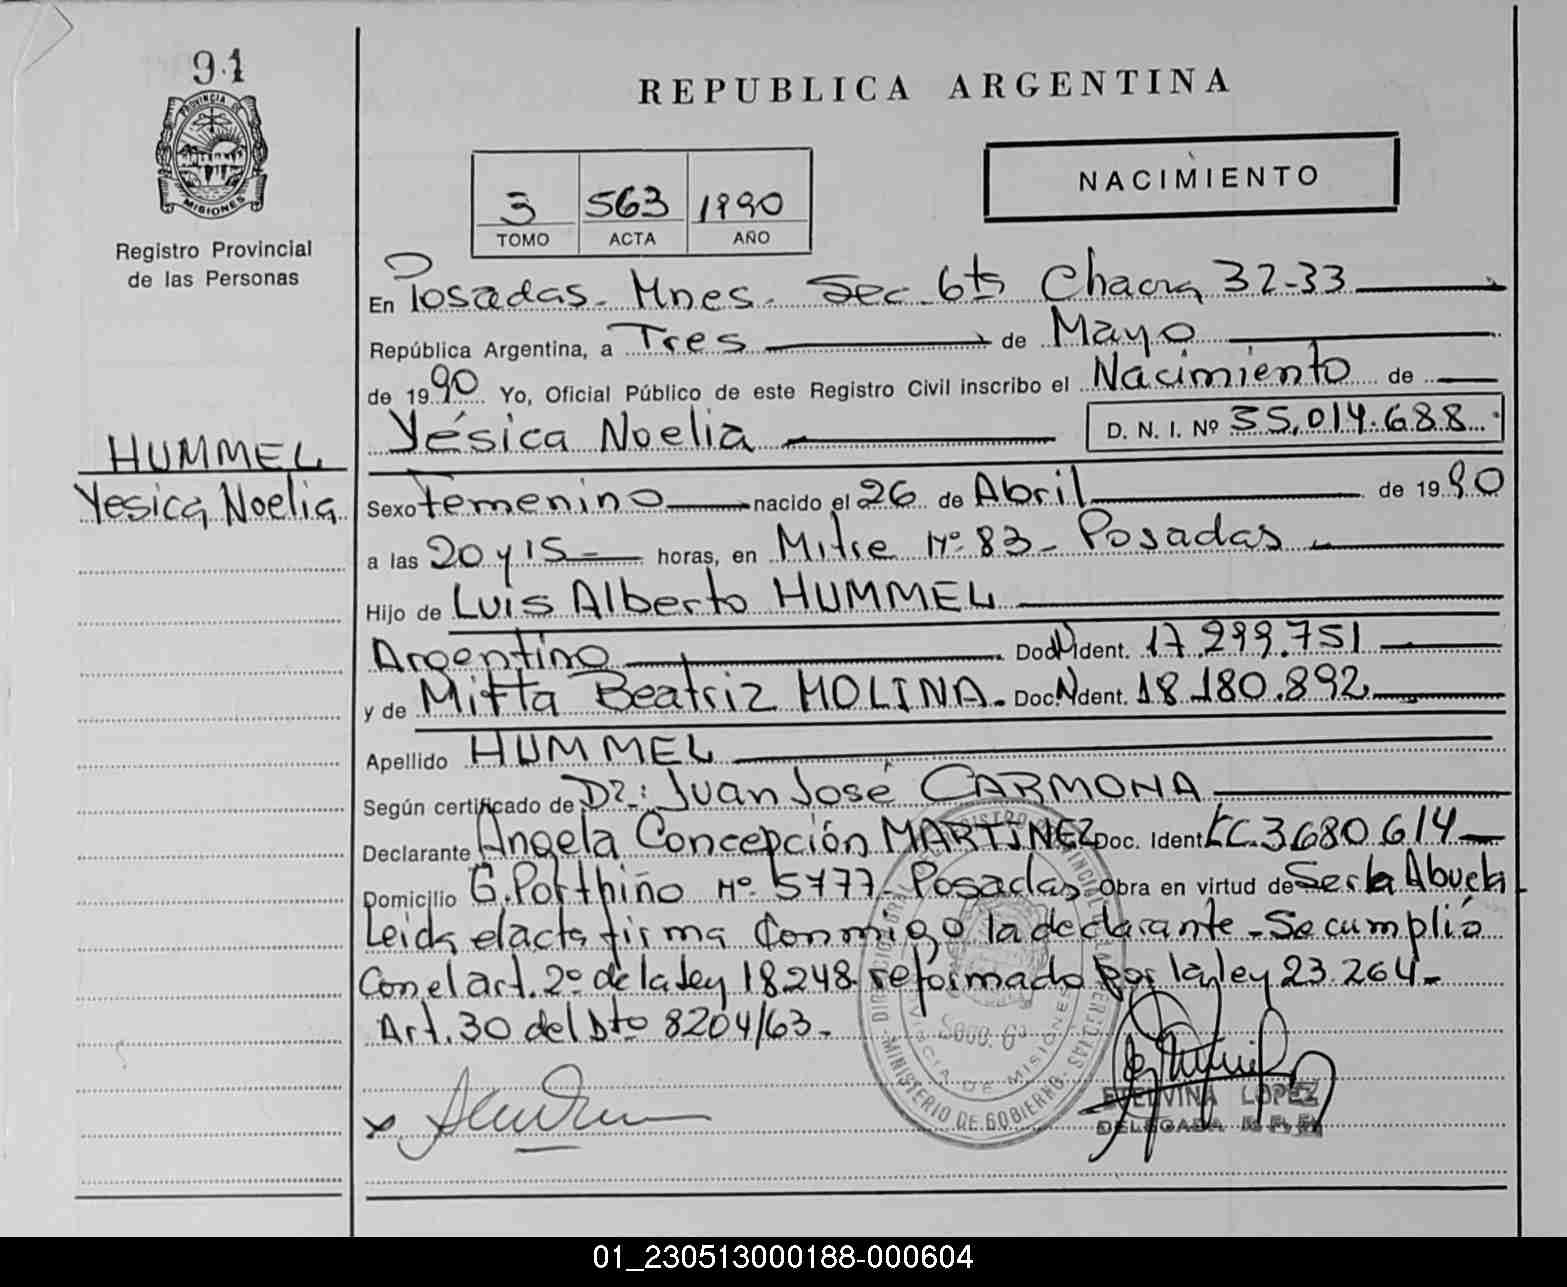 91
PROVINCIA DE
MISIONES
Registro Provincial
de las Personas
HUMMEL
Yesica Noelia
REPUBLICA ARGENTINA
NACIMIENTO
3 563 1990
TOMO ACTA AÑO
En Posadas - Mnes. Sec. 6ta Chacra 32-33
República Argentina, a Tres de Mayo
de 1990 Yo, Oficial Público de este Registro Civil inscribo el Nacimiento de
Yésica Noelia D. N. I. Nº 35.014.688
Sexo Femenino nacido el 26 de Abril de 1990
a las 20 y 15 horas, en Mitre Nº 83 - Posadas
Hijo de Luis Alberto HUMMEL
Argentino Doc. Ident. 17.299.751
y de Mirta Beatriz MOLINA - Doc. Ident. 18.180.892
Apellido HUMMEL
Según certificado de Dr.: Juan José CARMONA
Declarante Angela Concepción MARTINEZ Doc. Ident. LC. 3680614
Domicilio G. Porthiño Nº 5477 - Posadas Obra en virtud de Ser la Abuela
Leida el acta firma Conmigo la declarante - Se cumplió
Con el art. 2º de la Ley 18248 reformado por la ley 23.264 -
Art. 30 del Dto 8204/63 -
MINISTERIO DE GOBIERNO
Secc. 6ª
DE MISIONES
ETELVINA LOPEZ
DELEGADA R. P. P.
01_230513000188-000604